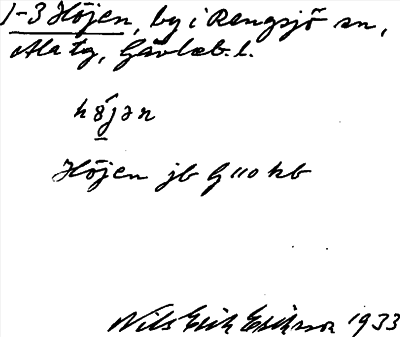 1-3 Höjen, by i Rengsjö sn,
Ala tg, Gävleb. l.
højən
Höjen jb G 110 kb
Nils Erik Eriksson 1933